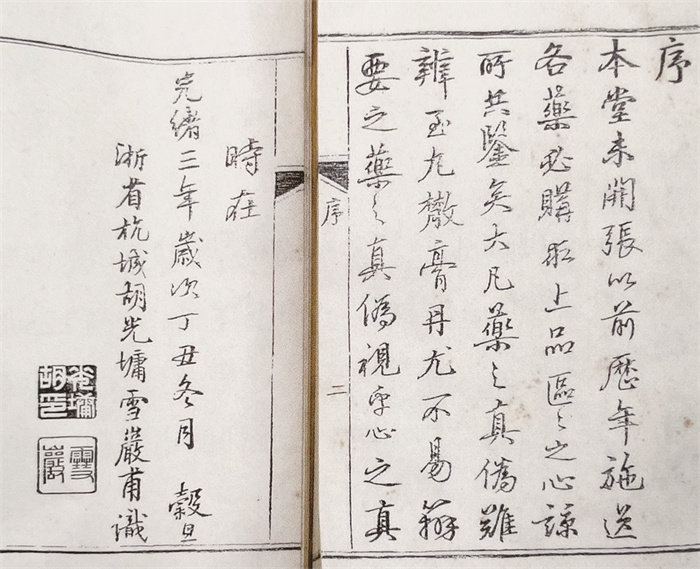 序
本堂未開張以前歷年施送
各藥必購取上品區〻之心諒
所共鑒矣大凡藥之真偽難
辨至丸散膏丹尤不易辨
要之藥之真偽視乎心之真
序
二
時在
光緒三年歲次丁丑冬月 穀旦
浙省杭城胡光墉雪巖甫識
光墉
胡印
雪巖